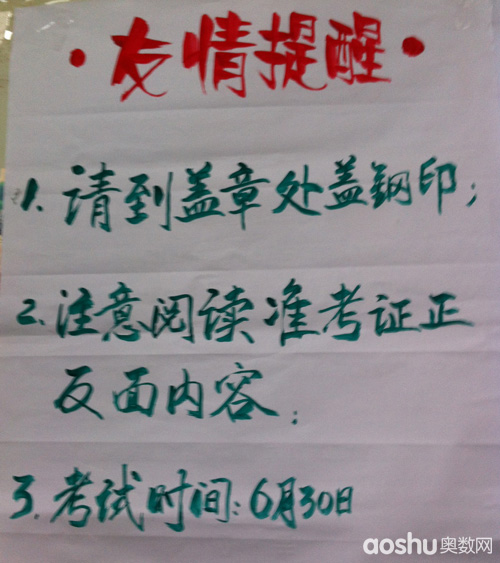 ·友情提醒·
1. 请到盖章处盖钢印;
2. 注意阅读准考证正
反面内容;
3. 考试时间:6月30日
aoshu奥数网